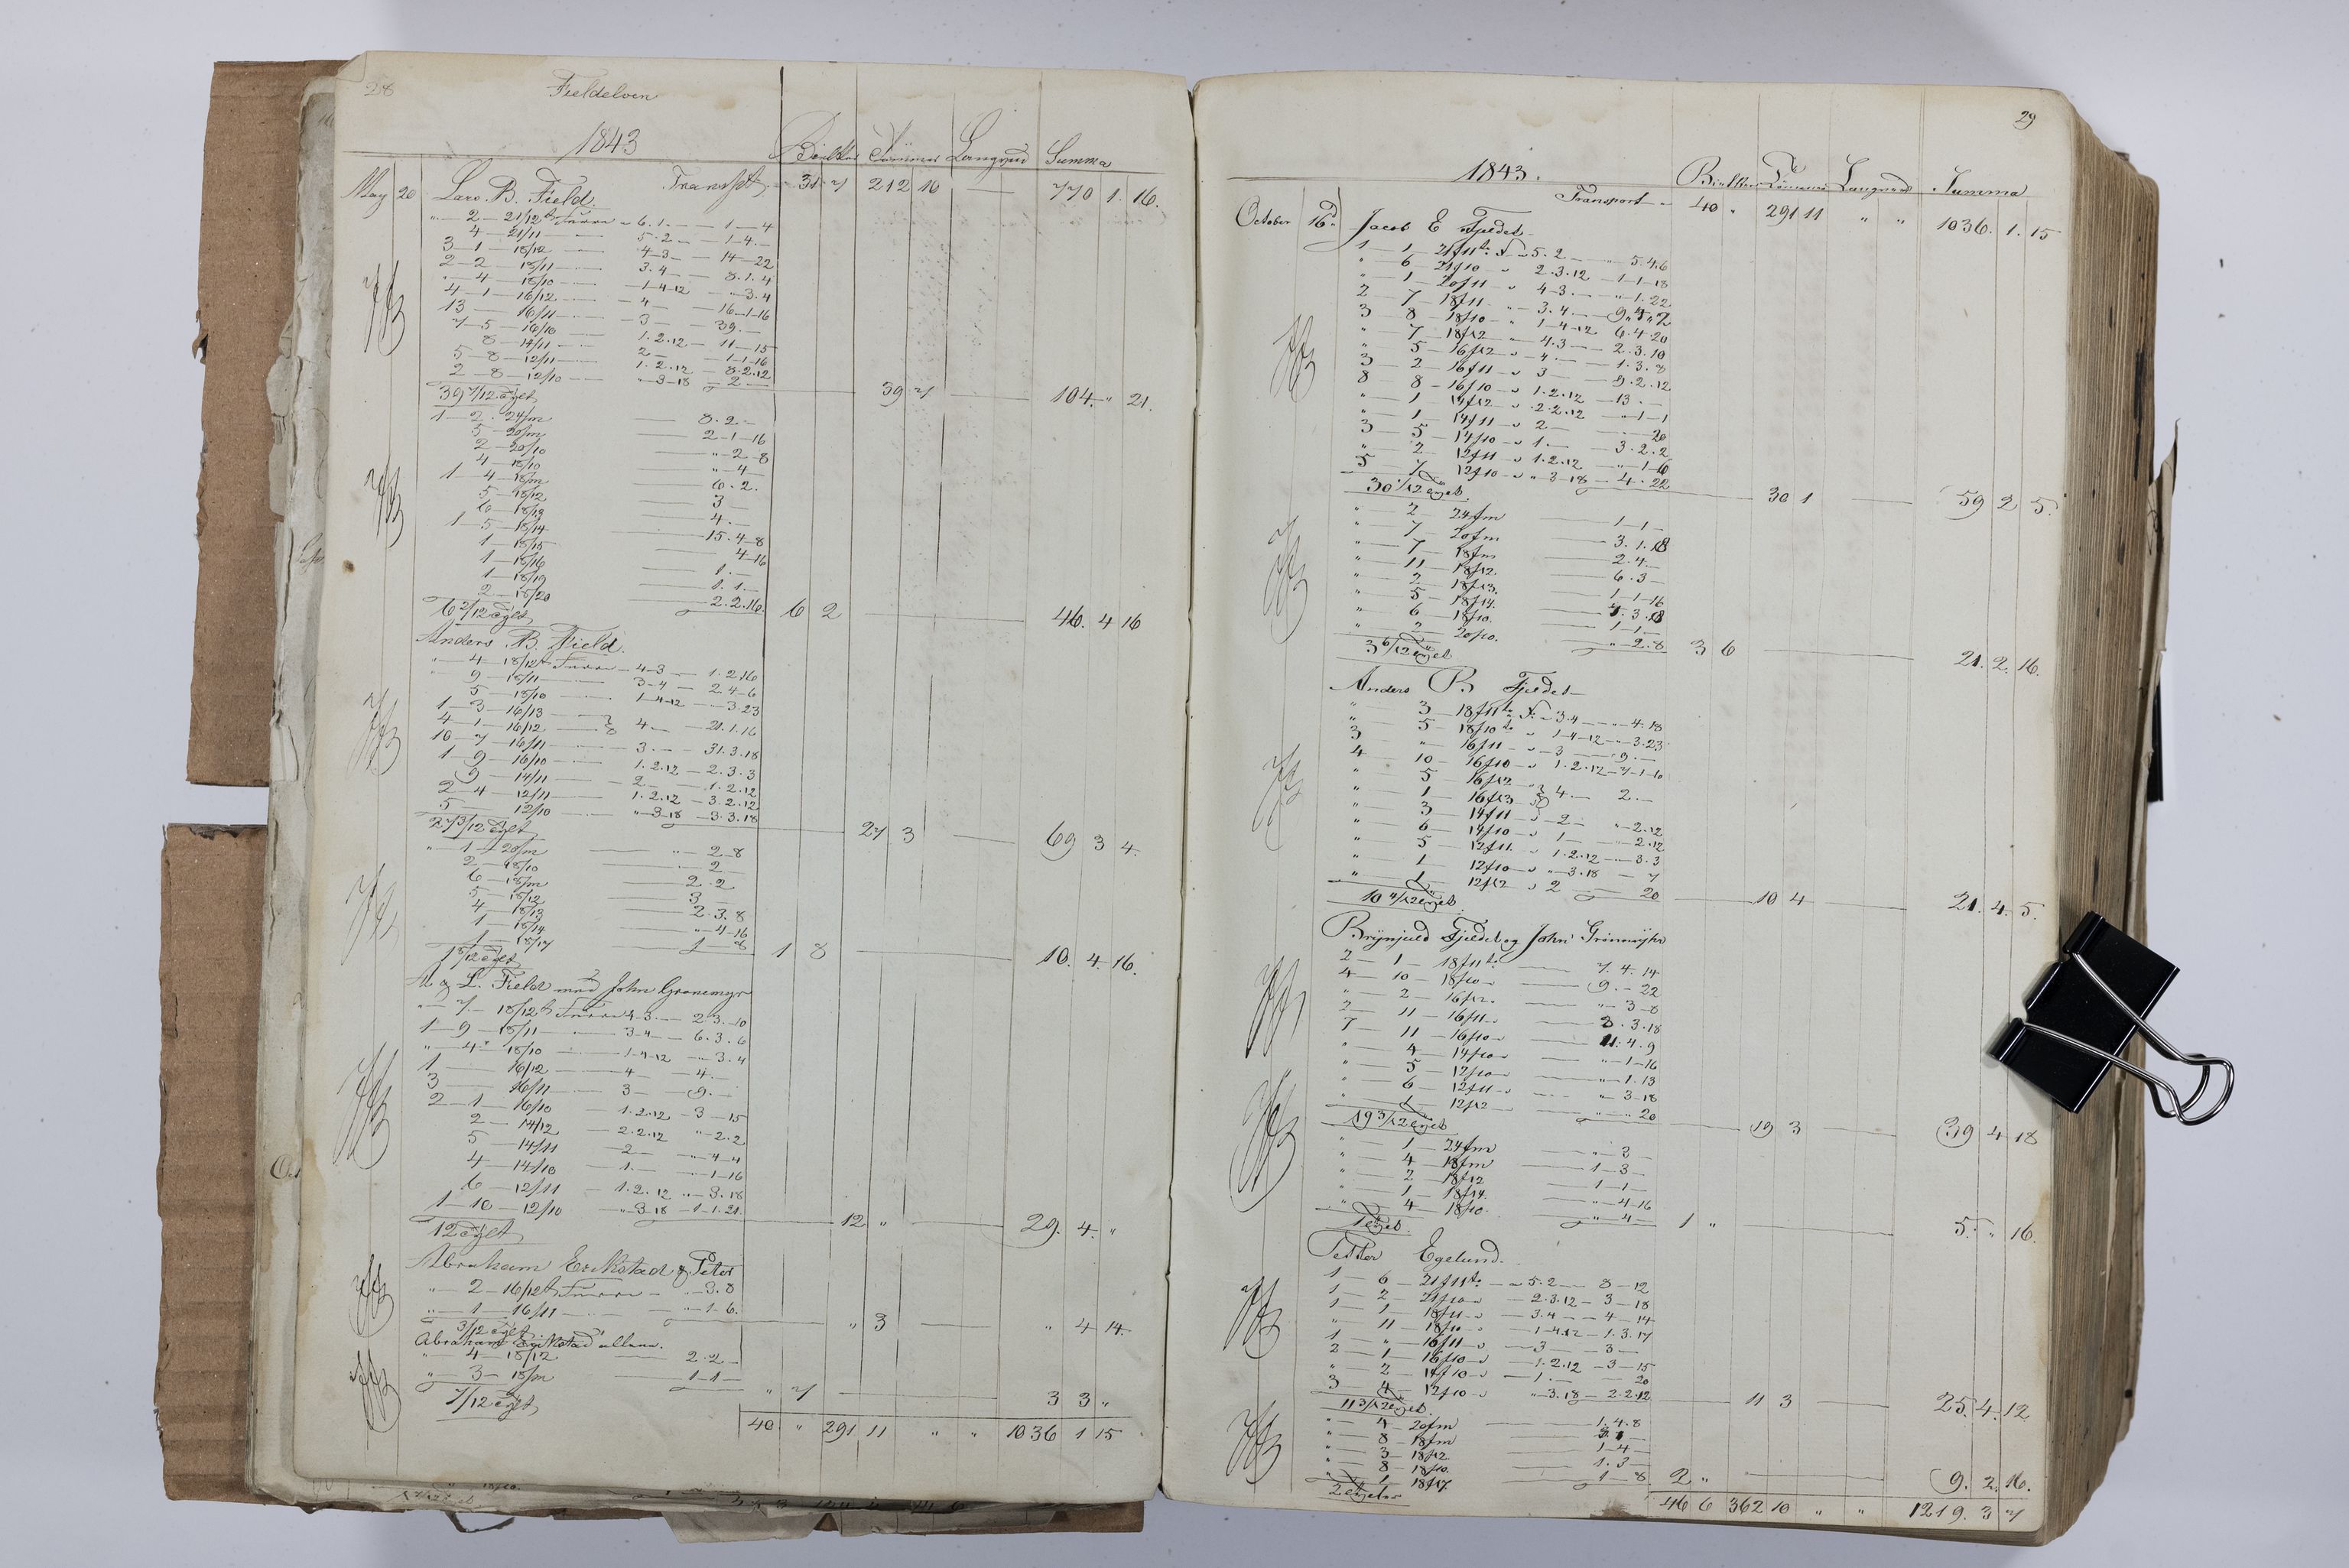 28
Fieldelven
1843 Bielker Tømmer Langved Summa
May 20 Lars B. Field. Transpt. 31 7 212 10 — 770 1. 16.
" — 2 — 21/12 t Furre — 6. 1. — 1 — 4
4 — 21/11 — 5. 2 — 1 — 4. —
3 — 1 — 18/12 — 4 — 3 — 14 — 22
2 — 2 — 18/11 — 3. 4 — 8. 1. 4
" — 4 — 18/10 — 1 — 4 — 12 — " — 3. 4
4 — 1 — 16/12 — 4 — 16 — 1 — 16
13 — 16/11 — 3 — 39. —
7 — 5 — 16/10 — 1. 2. 12 — 11 — 15
8 — 14/11 — 2 — 1 — 1 — 16
5 — 8 — 12/11 — 1. 2. 12 — 8. 2. 12
2 — 8 — 12/10 — " — 3 — 18 — 2 —
39 7/12 eget 39 7 — 104. " 21.
1 — 2 — 24/m — 8. 2 —
5 — 20/m — 2 — 1 — 16
2 — 20/10 — " — 2 — 8
4 — 18/10 — " — 4 —
1 — 4 — 18/m — 6. 2.
5 — 18/12 — 3 —
6 — 18/13 — 4. —
1 — 5 — 18/14 — 15. 4 — 8
1 — 18/15 — 4 — 16
1 — 18/16 — 1. —
1 — 18/19 — 1. 1. —
2 — 18/20 — 2. 2. 16.
6 2/12 eget 6 2 — 46. 4 16
Anders B. Field.
" — 4 — 18/12 t Furre — 4 — 3 — 1. 2. 16
" — 9 — 18/11 — 3 — 4 — 2 4 — 6
5 — 18/10 — 1 — 4 — 12 — " — 3. 23
1 — 3 — 16/13
4 — 1 — 16/12 — 4 — 21. 1. 16
10 — 7 — 16/11 — 3. — 31. 3. 18
1 — 9 — 16/10 — 1. 2. 12 — 2. 3. 3
9 — 14/11 — 2 — 1. 2. 12
2 — 4 — 12/11 — 1. 2. 12 — 3. 2. 12
5 — 12/10 — " — 3 — 18 — 3. 3. 18
27 3/12 eget 27 3 — 69 3 4.
" — 1 — 20/m — " — 2 — 8
2 — 18/10 — 2 —
6 — 18/m — 2. 2
5 — 18/12 — 3 —
4 — 18/13 — 2. 3. 8
1 — 18/14 — " 4 — 16
1 — 18/17 — 1 — 8
1 8/12 eget 1 8 — 10. 4. 16.
A & L. Field med John Gronemyr
" — 7. — 18/12 t Furre 4. 3. — 2. 3. 10
1 — 9 — 18/11 — 3 — 4 — 6. 3. 6
" — 4 — 18/10 — 1 — 4 — 12 — " — 3. 4
1 — 16/12 — 4 — 4. —
3 — 16/11 — 3 — 9. —
2 — 1 — 16/10 — 1. 2. 12 — 3 — 15
2 — 14/12 — 2. 2. 12 " — 2. 2
5 — 14/11 — 2 — " — 4 — 4
4 — 14/10 — 1. — " — 1 — 16
6 — 12/11 — 1. 2. 12 " — 3. 18
1 — 10 — 12/10 — " — 3 — 18 — 1 — 1. 21.
12 eget 12 " — 29. 4. "
Abraham Erikstad & Peter
" — 2 — 16/12 t Furre — " — 3. 8
" — 1 — 16/11 — " — 1 — 6.
3/12 eget " 3 — " 4 14
Abraham Erikstad allene.
" — 4 — 18/12 — 2. 2 —
" — 3 — 18/m — 1 — 1 —
7/12 eget " 7 — 3 3 "
40 " 291 11 " " 1036 1 15
29
1843. Bielker Tømmer Langved Summa
Transport — 40 " 291 11 " " 1036. 1. 15
October 16d Jacob E Fjeldet
1 — 1 — 21f11 t. F — 5. 2 — 5. 4. 6
" — 6 — 21f10 — 2. 3. 12 — 1 — 1 — 18
" — 1 — 20f11 — 4 — 3. — " — 1. 22
2 — 7 — 18f11 — 3. 4. — 9. 4. 2
3 — 8 — 18f10 — 1 — 4 — 12 6. 4. 20
" — 7 — 18f12 — 4. 3 — 2. 3. 10
" — 5 — 16f12 — 4. — 1. 3. 8
3 — 2 — 16f11 — 3 — 9. 2. 12
8 — 8 — 16f10 — 1. 2. 12 — 13. —
" — 1 — 14f12 — 2. 2. 12 " — 1 — 1
" — 1 — 14f11 — 2 — 20
3 — 5 — 14f10 — 1. — 3. 2. 2
" — 2 — 12f11 — 1. 2. 12 " — 1 — 6
5 — 7 — 12f10 — " — 3 — 18 — 4. 22
30 1/12 eget 30 1 — 59 2 5.
" — 2 — 24fm — 1 — 1 —
" — 7 — 20fm — 3. 1. 8
" — 7 — 18fm — 2. 4. —
" — 11 — 18f12. — 6. 3 —
" — 2 — 18f13. — 1 — 1 — 16
" — 5 — 18f14. — 4. 3. 8
" — 6 — 18f10. — 1 — 1 —
" — 2 — 20f10. — " — 2. 8
3 6/12 eget 3 6 — 21. 2. 16.
Anders B. Fjeldet
" — 3 — 18f11 t. F. — 3. 4 — " — 4. 18
" — 5 — 18f10 t. " 1 — 4 — 12 — " — 3. 23
3 — " — 16f11 — 3 — 9. —
4 — 10 — 16f10 — 1. 2. 12 — 7 — 1 — 10
" — 5 — 16f12
" — 1 — 16f13 4. — 2. —
" — 3 — 14f11 — 2 — " — 2. 12
" — 6 — 14f10 — 1 — " — 2. 12
" — 5 — 12f11. — 1. 2. 12 — " — 3. 3
" — 1 — 12f10 — " — 3. 18 — 7
" — 1 — 12f12 — 2 — 20
10 4/12 eget 10 4 — 21. 4. 5.
Brynjuld Fjeldet og John Grönmyhr
2 — 1 — 18f11 t. — 7. 4. 14
4 — 10 — 18f10 — 9. — 22
" — 2 — 16f12. — " — 3 — 8
2 — 11 — 16f11 — 8. 3. 18
7 — 11 — 16f10 — 11. 4. 9
" — 4 — 14f10 — " — 1 — 16
" — 5 — 12f10 — " — 1. 13
" — 6 — 12f11 — " — 3 — 18
" — 1 — 12f12 — " — " 20
19 3/12 eget 19 3 — 39 4 18
" — 1 — 24fm — " — 3 —
" — 4 — 18fm — 1 — 3 —
" — 2 — 18f12 — 1 — 1 —
" — 1 — 18f14. — " — 4 — 16
" — 4 — 18f10. — " — 4 —
1 eget. 1 " — 5. " 16.
Petter Egelund.
1 — 6 — 21f11 t. — 5. 2 — 8 — 12
1 — 2 — 21f10 — 2. 3. 12 — 3 — 18
1 — 1 — 18f11 — 3. 4 — 4 — 14
" — 11 — 18f10 — 1 — 4. 12 — 1. 3. 17
1 — " — 16f11 — 3 — 3 —
2 — 1 — 16f10 — 1. 2. 12 — 3 — 15
" — 2 — 14f10 — 1. — 20
3 — 4 — 12f10 — " — 3. 18 — 2. 2. 12
11 3/12 eget. 11 3 — 25. 4. 12
" — 4 — 20fm — 1. 4. 8
" — 8 — 18fm — 3. 1 —
" — 3 — 18f12. — 1 — 4 —
" — 8 — 18f10. — 1. 3 —
" — 1 — 18f17 — 1 — 8
2 eget 2 " — 9. 2. 16.
46 6 362 10 " " 1219. 3 7